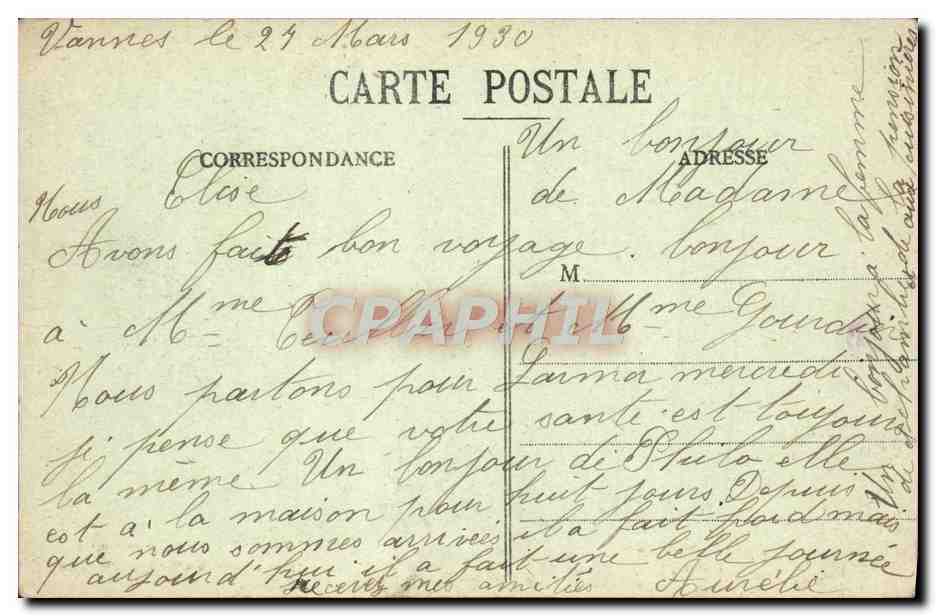 Vannes le 24 Mars 1930
CARTE POSTALE
CORRESPONDANCE
ADRESSE
Un bonjour
Elise de Madame
Nous
Avons fait bon voyage. bonjour
M
à Mme et Mme Gourdin
CPAPHIL
Nous partons pour Larmor mercredi
ji pense que votre santé est toujours
la même Un bonjour de Philo elle
est à la maison pour huit jours. Depuis
que nous sommes arrivées il a fait froid mais
aujourd'hui il a fait une belle journée
recevez mes amitiés Aurélie
Un bonjour à la femme
de la pension
aux cuisinières